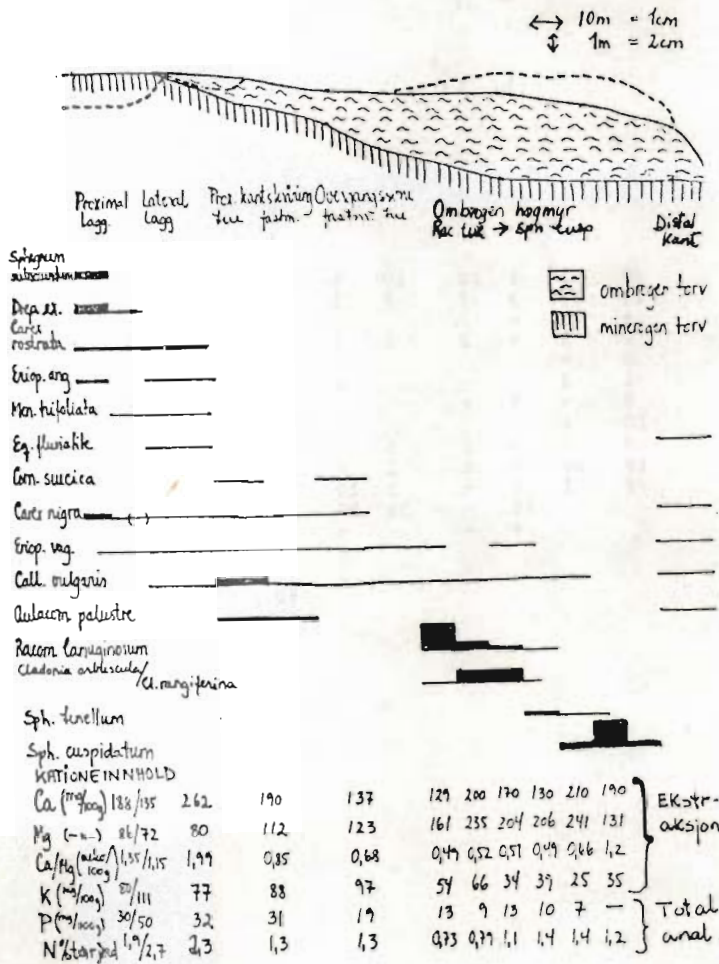 10m = 1cm
1m = 2cm
Proximal Lagg.
Lateral Lagg
Prox. kantskråning tue fastm.
Overgangssone fastm. tue
Ombrogen høgmyr
Rac tue → Sph cusp
Distal kant
ombrogen torv
minerogen torv
Sphagnum
Drep. ex.
Carex rostrata
Eriop. ang
Men. trifoliata
Eq. fluviatile
Corn. suecica
Carex nigra (-)
Eriop. vag.
Call. vulgaris
Aulacom palustre
Racom lanuginosum
Cladonia arbuscula/
Cl. rangiferina
Sph. tenellum
Sph. cuspidatum
KATIONEINNHOLD
Ca (mg/100g) 188/135 262 190 137 129 200 170 130 210 190
Mg (-"-) 86/72 80 112 123 161 235 204 206 241 131
Ca/Mg 1,35/1,15 1,99 0,85 0,68 0,49 0,52 0,51 0,49 0,66 1,2
K (mg/100g) 80/111 77 88 97 54 66 34 39 25 35
Ekstraksjon
P (mg/100g) 30/50 32 31 19 13 9 13 10 7 —
N% 1,9/2,7 2,3 1,3 1,3 0,73 0,79 1,1 1,4 1,4 1,2
Total anal